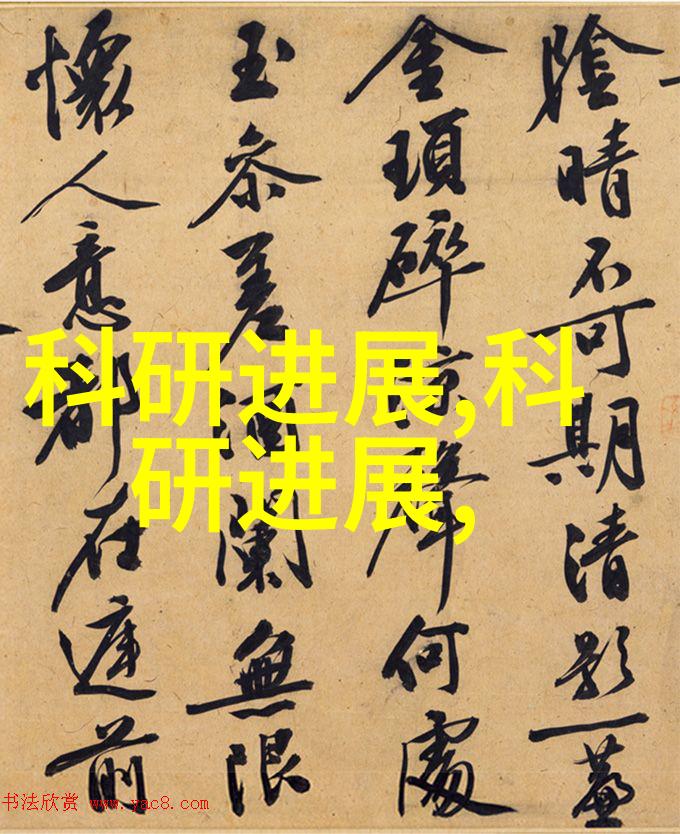 陰晴不可期清影一
金瑣碎涼聲何處
玉參差酒闌無限
懷人意都在前
科研进展,科
研进展,
书法欣赏 www.yac8.com